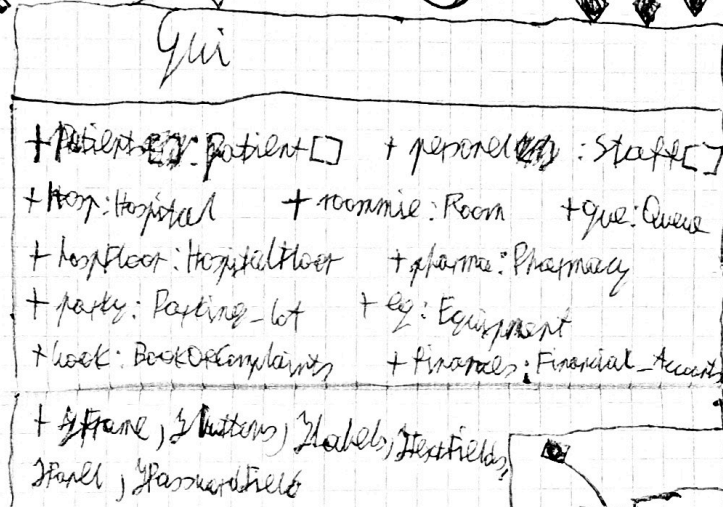 Gui
+ Patients : patient[] + personel : Staff[]
+ Hosp : Hospital + roommie : Room + que : Queue
+ hospFloor : HospitalFloor + pharma : Pharmacy
+ parky : Parking_lot + eq : Equipment
+ book : BookOfComplaints + finances : Financial_Accounts
+ JFrame, JButtons, JLabels, JTextFields,
JPanel, JPasswordField